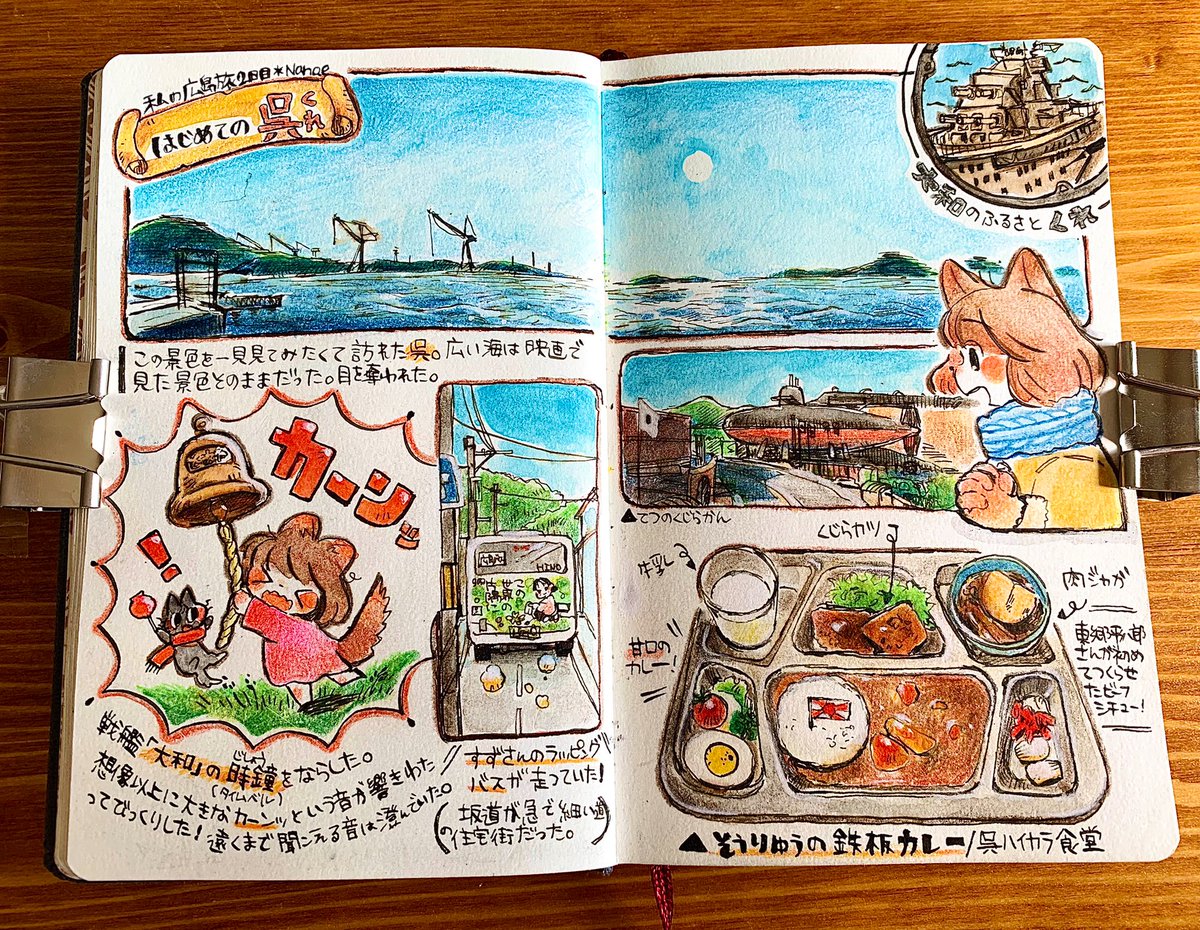 私の広島旅2日目*Nanae
はじめての呉
くれ
大和のふるさと くれ
この景色を一見見てみたくて訪れた呉。広い海は映画で
見た景色とのままだった。目を奪われた。
カーンッ
!!
戦艦「大和」の時鐘をならした。
じしょう
(タイムベル)
想像以上に大きなカーンッという音が響きわた
ってびっくりした!遠くまで聞こえる音は澄んでいた。
広島
HINO
この
世界の
すずさんのラッピング
バスが走っていた!
(坂道が急で細い道
の住宅街だった。)
▲てつのくじらかん
くじらカツ
牛乳
甘口の
カレー!
肉ジャガ
東郷平八郎
さんが初め
てつくらせ
たビーフ
シチュー!
▲そうりゅうの鉄板カレー/呉ハイカラ食堂